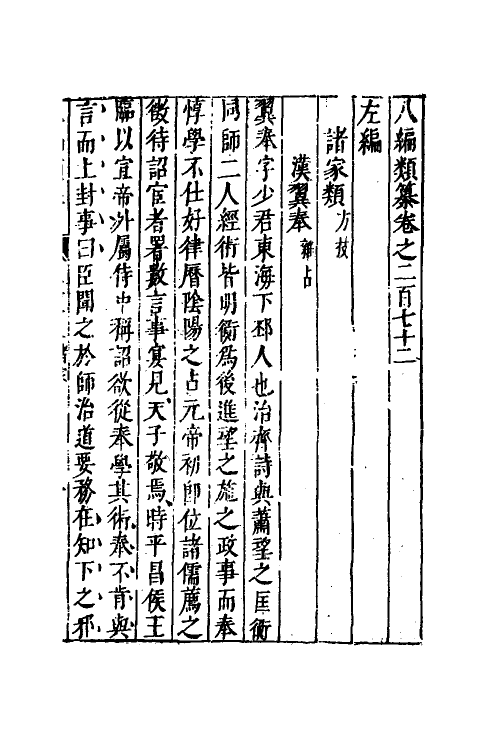 八編類纂卷之二百七十二
左編
諸家類方技
漢翼奉雜占
翼奉字少君東海下邳人也治齊詩與蕭望之匡衡
同師二人經術皆明衡爲後進望之施之政事而奉
惇學不仕好律曆陰陽之占元帝初卽位諸儒薦之
徵待詔宦者署數言事宴見天子敬焉時平昌侯王
臨以宣帝外屬侍中稱詔欲從奉學其術奉不肯與
言而上封事曰臣聞之於師治道要務在知下之邪